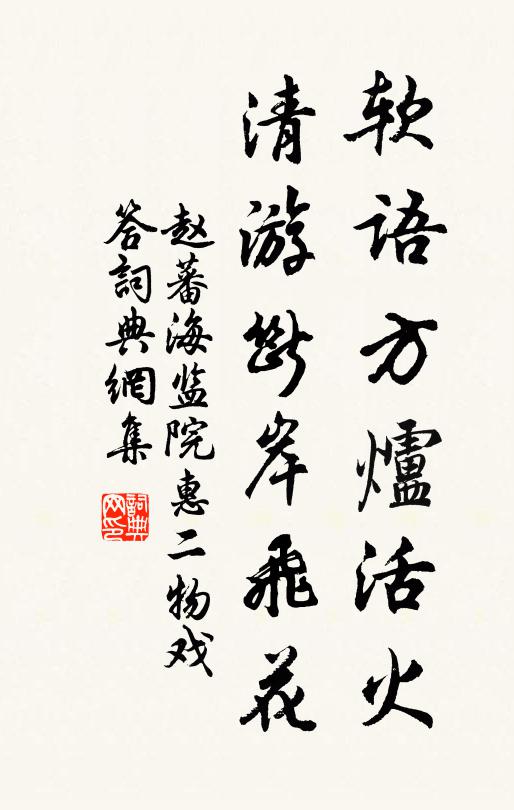 软语方爐活火
清游断岸飛花
赵蕃海监院惠二物戏
答詞典網集
詞典网印